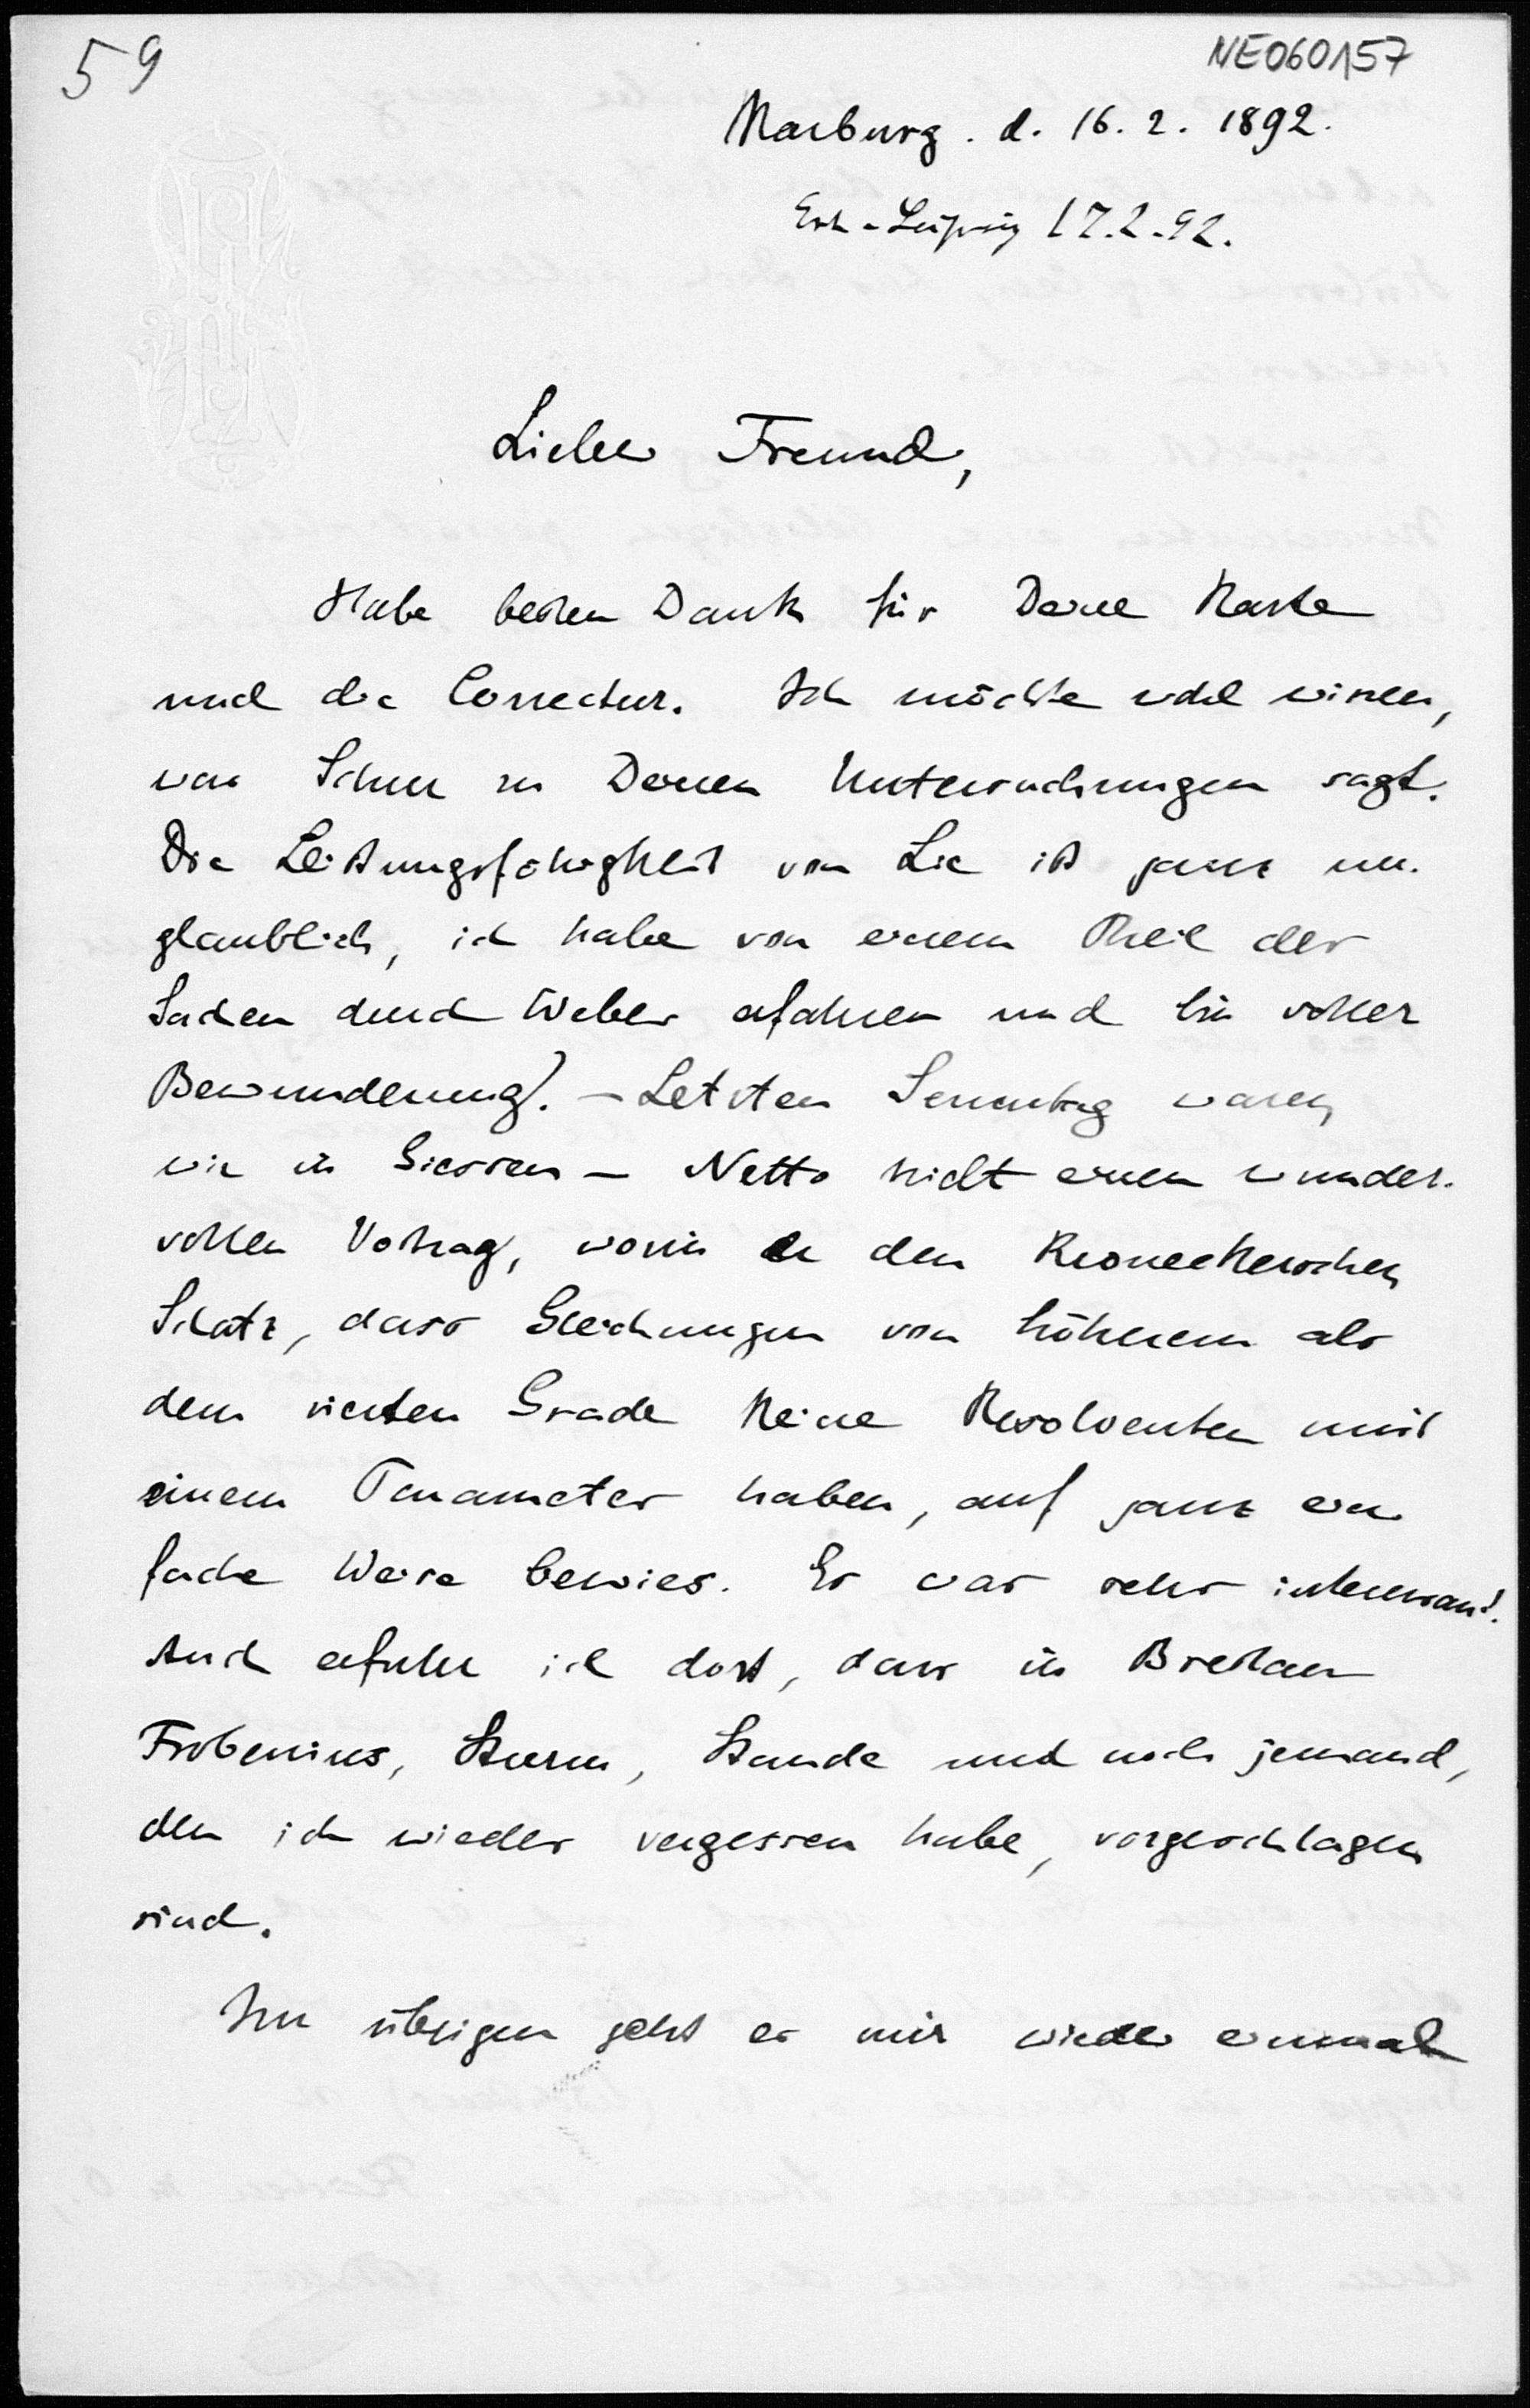 59
NE060157
Marburg. d. 16. 2. 1892.
Erh. Leipzig 17.2.92.
Lieber Freund,
Habe besten Dank für Deine Karte
und die Correctur. Ich möchte wohl wissen,
was Schur zu Deinen Untersuchungen sagt.
Die Leistungsfähigkeit von Lie ist ganz un-
glaublich, ich habe von einem Theil der
Sachen durch Weber erfahren und bin voller
Bewunderung. - Letzten Sonntag waren
wir in Giessen - Netto hielt einen wunder-
vollen Vortrag, worin er den Kroneckerschen
Schatz, dass Gleichungen von höherem als
dem vierten Grade keine Resolventen mit
einem Parameter haben, auf ganz ein-
fache Weise bewies. Es war sehr interessant.
Auch erfuhr ich dort, dass in Breslau
Frobenius, Sturm, Staude und noch jemand,
den ich wieder vergessen habe, vorgeschlagen
sind.
Im übrigen geht es mir wieder einmal